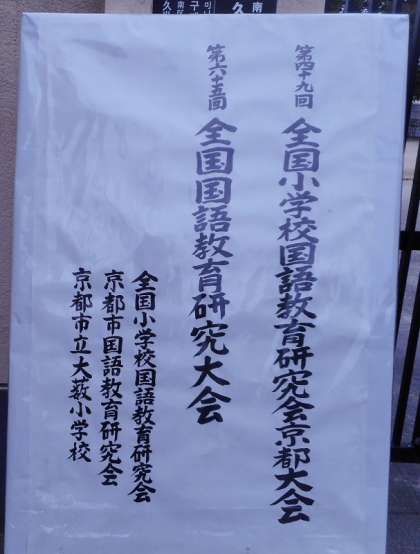 第四十九回 全国小学校国語教育研究会京都大会
第六十五回 全国国語教育研究大会
全国小学校国語教育研究会
京都市国語教育研究会
京都市立大薮小学校